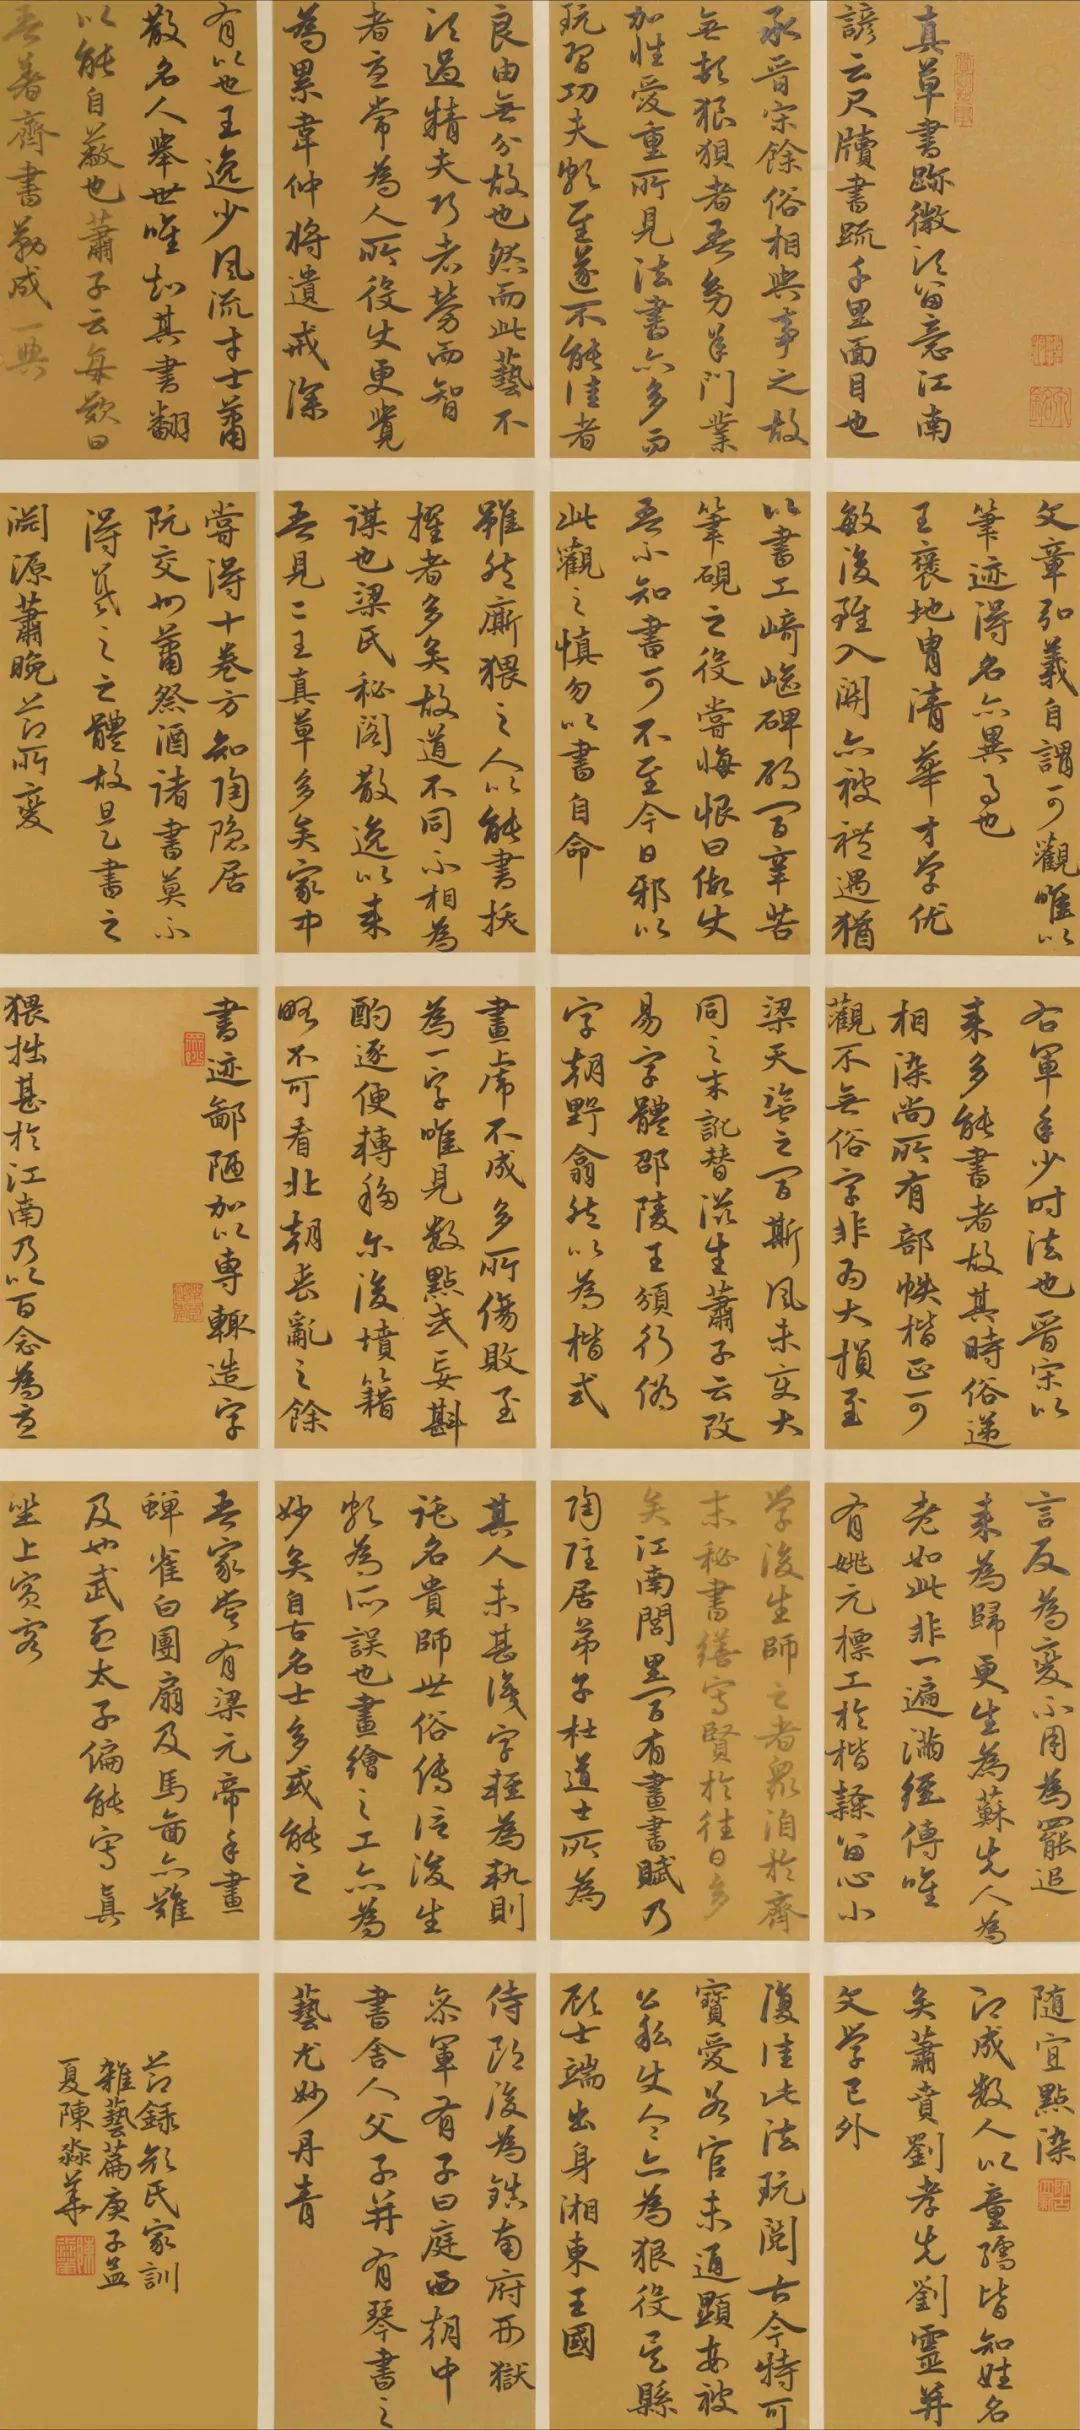 真草書跡微須留意江南
諺云尺牘書疏千里面目也
承晉宋餘俗相與事之故
無頓狼狽者吾幼承門業
加性愛重所見法書亦多而
玩習功夫頗至遂不能佳者
良由無分故也然而此藝不
須過精夫巧者勞而智
者憂常為人所役使更覺
為累韋仲將遺戒深
有以也王逸少風流才士蕭
散名人舉世唯知其書翻
以能自蔽也蕭子云每歎曰
吾著齊書勒成一典
文章弘義自謂可觀唯以
筆迹得名亦異事也
王褒地冑清華才学优
敏後雖入關亦被禮遇猶
以書工崎嶇碑碣間辛苦
筆硯之役嘗悔恨曰假使
吾不知書可不至今日邪以
此觀之慎勿以書自命
雖然廝猥之人以能書拔
擢者多矣故道不同不相為
謀也梁氏秘閣散逸以來
吾見二王真草多矣家中
嘗得十卷方知陶隐居
阮交州蕭祭酒諸書莫不
得羲之之體故是書之
淵源蕭晚節所變
右軍年少时法也晉宋以
来多能書者故其時俗遞
相染尚所有部帙楷正可
觀不無俗字非為大損至
梁天監之間斯風未变大
同之末訛替滋生蕭子云改
易字體邵陵王頗行偽
字朝野翕然以為楷式
畫虎不成多所傷敗至
為一字唯見数點或妄斟
酌逐便轉移尔後墳籍
略不可看北朝喪亂之餘
書迹鄙陋加以專輒造字
猥拙甚於江南乃以百念為憂
言反為變不用為罷追
来為歸更生為蘇先人為
老如此非一遍滿經傳唯
有姚元標工於楷隸留心小
学後生師之者眾洎於齊
末秘書繕寫賢於往日多
矣江南閭里間有畫書賦乃
陶隐居弟子杜道士所為
其人未甚識字輕為軌則
託名貴師世俗傳信後生
頗為所誤也畫繪之工亦為
妙矣自古名士多或能之
吾家嘗有梁元帝手畫
蟬雀白團扇及馬圖亦難
及也武烈太子偏能寫真
坐上賓客
随宜點染
即成数人以童孺皆知姓名
矣蕭賁劉孝先劉靈并
文学已外
復佳此法玩閱古今特可
寶愛若官未通顯每被
公私使令亦為猥役吳縣
顧士端出身湘東王國
侍郎後為鎮南府刑獄
參軍有子曰庭西朝中
書舍人父子并有琴書之
藝尤妙丹青
節録顏氏家訓
雜藝篇庚子孟
夏陳淼華